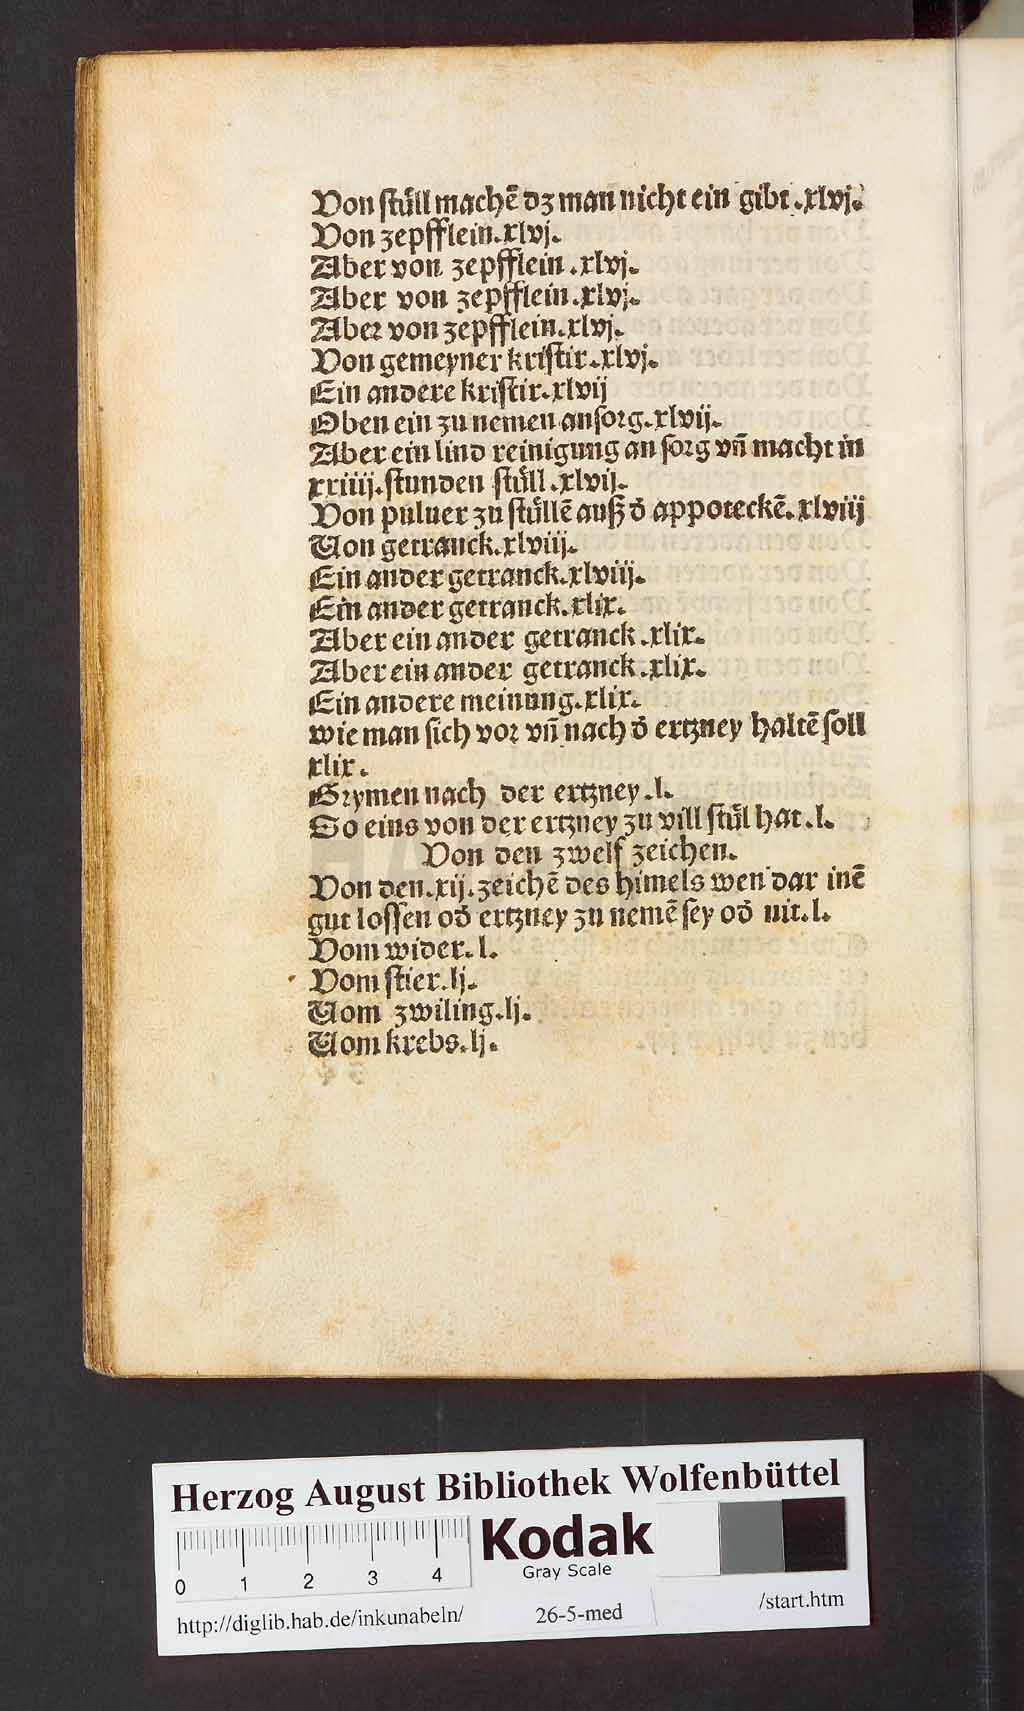 Von stüll machē dz man nicht ein gibt .xlvj.
Von zepfflein.xlvj.
Aber von zepfflein .xlvj.
Aber von zepfflein.xlvj.
Aber von zepfflein.xlvj.
Von gemeyner kristir.xlvj.
Ein andere kristir.xlvij
Oben ein zu nemen an sorg.xlvij.
Aber ein lind reinigung an sorg vñ macht in
xxiiij.stunden stüll .xlvij.
Von puluer zu stüllē auß d' appoteckē.xlviij
Von getranck.xlviij.
Ein ander getranck.xlviij.
Ein ander getranck.xlix.
Aber ein ander getranck .xlix.
Aber ein ander getranck .xlix.
Ein andere meinung.xlix.
wie man sich vor vñ nach d' ertzney haltē soll
xlix.
Grymen nach der ertzney .l.
So eins von der ertzney zu vill stül hat .l.
Von den zwelf zeichen.
Von den.xij.zeichē des himels wen dar inē
gut lossen od' ertzney zu nemē sey od' nit.l.
Vom wider.l.
Vom stier.lj.
Vom zwiling.lj.
Vom krebs.lj.
Herzog August Bibliothek Wolfenbüttel
Kodak
Gray Scale
0 1 2 3 4
http://diglib.hab.de/inkunabeln/ 26-5-med /start.htm